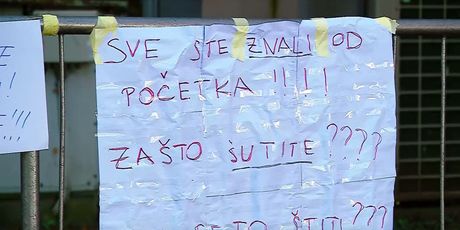 SVE STE ZNALI OD
POČETKA !!!!
ZAŠTO ŠUTITE ????
SE TO ŠTITI ???
E
!
!!!